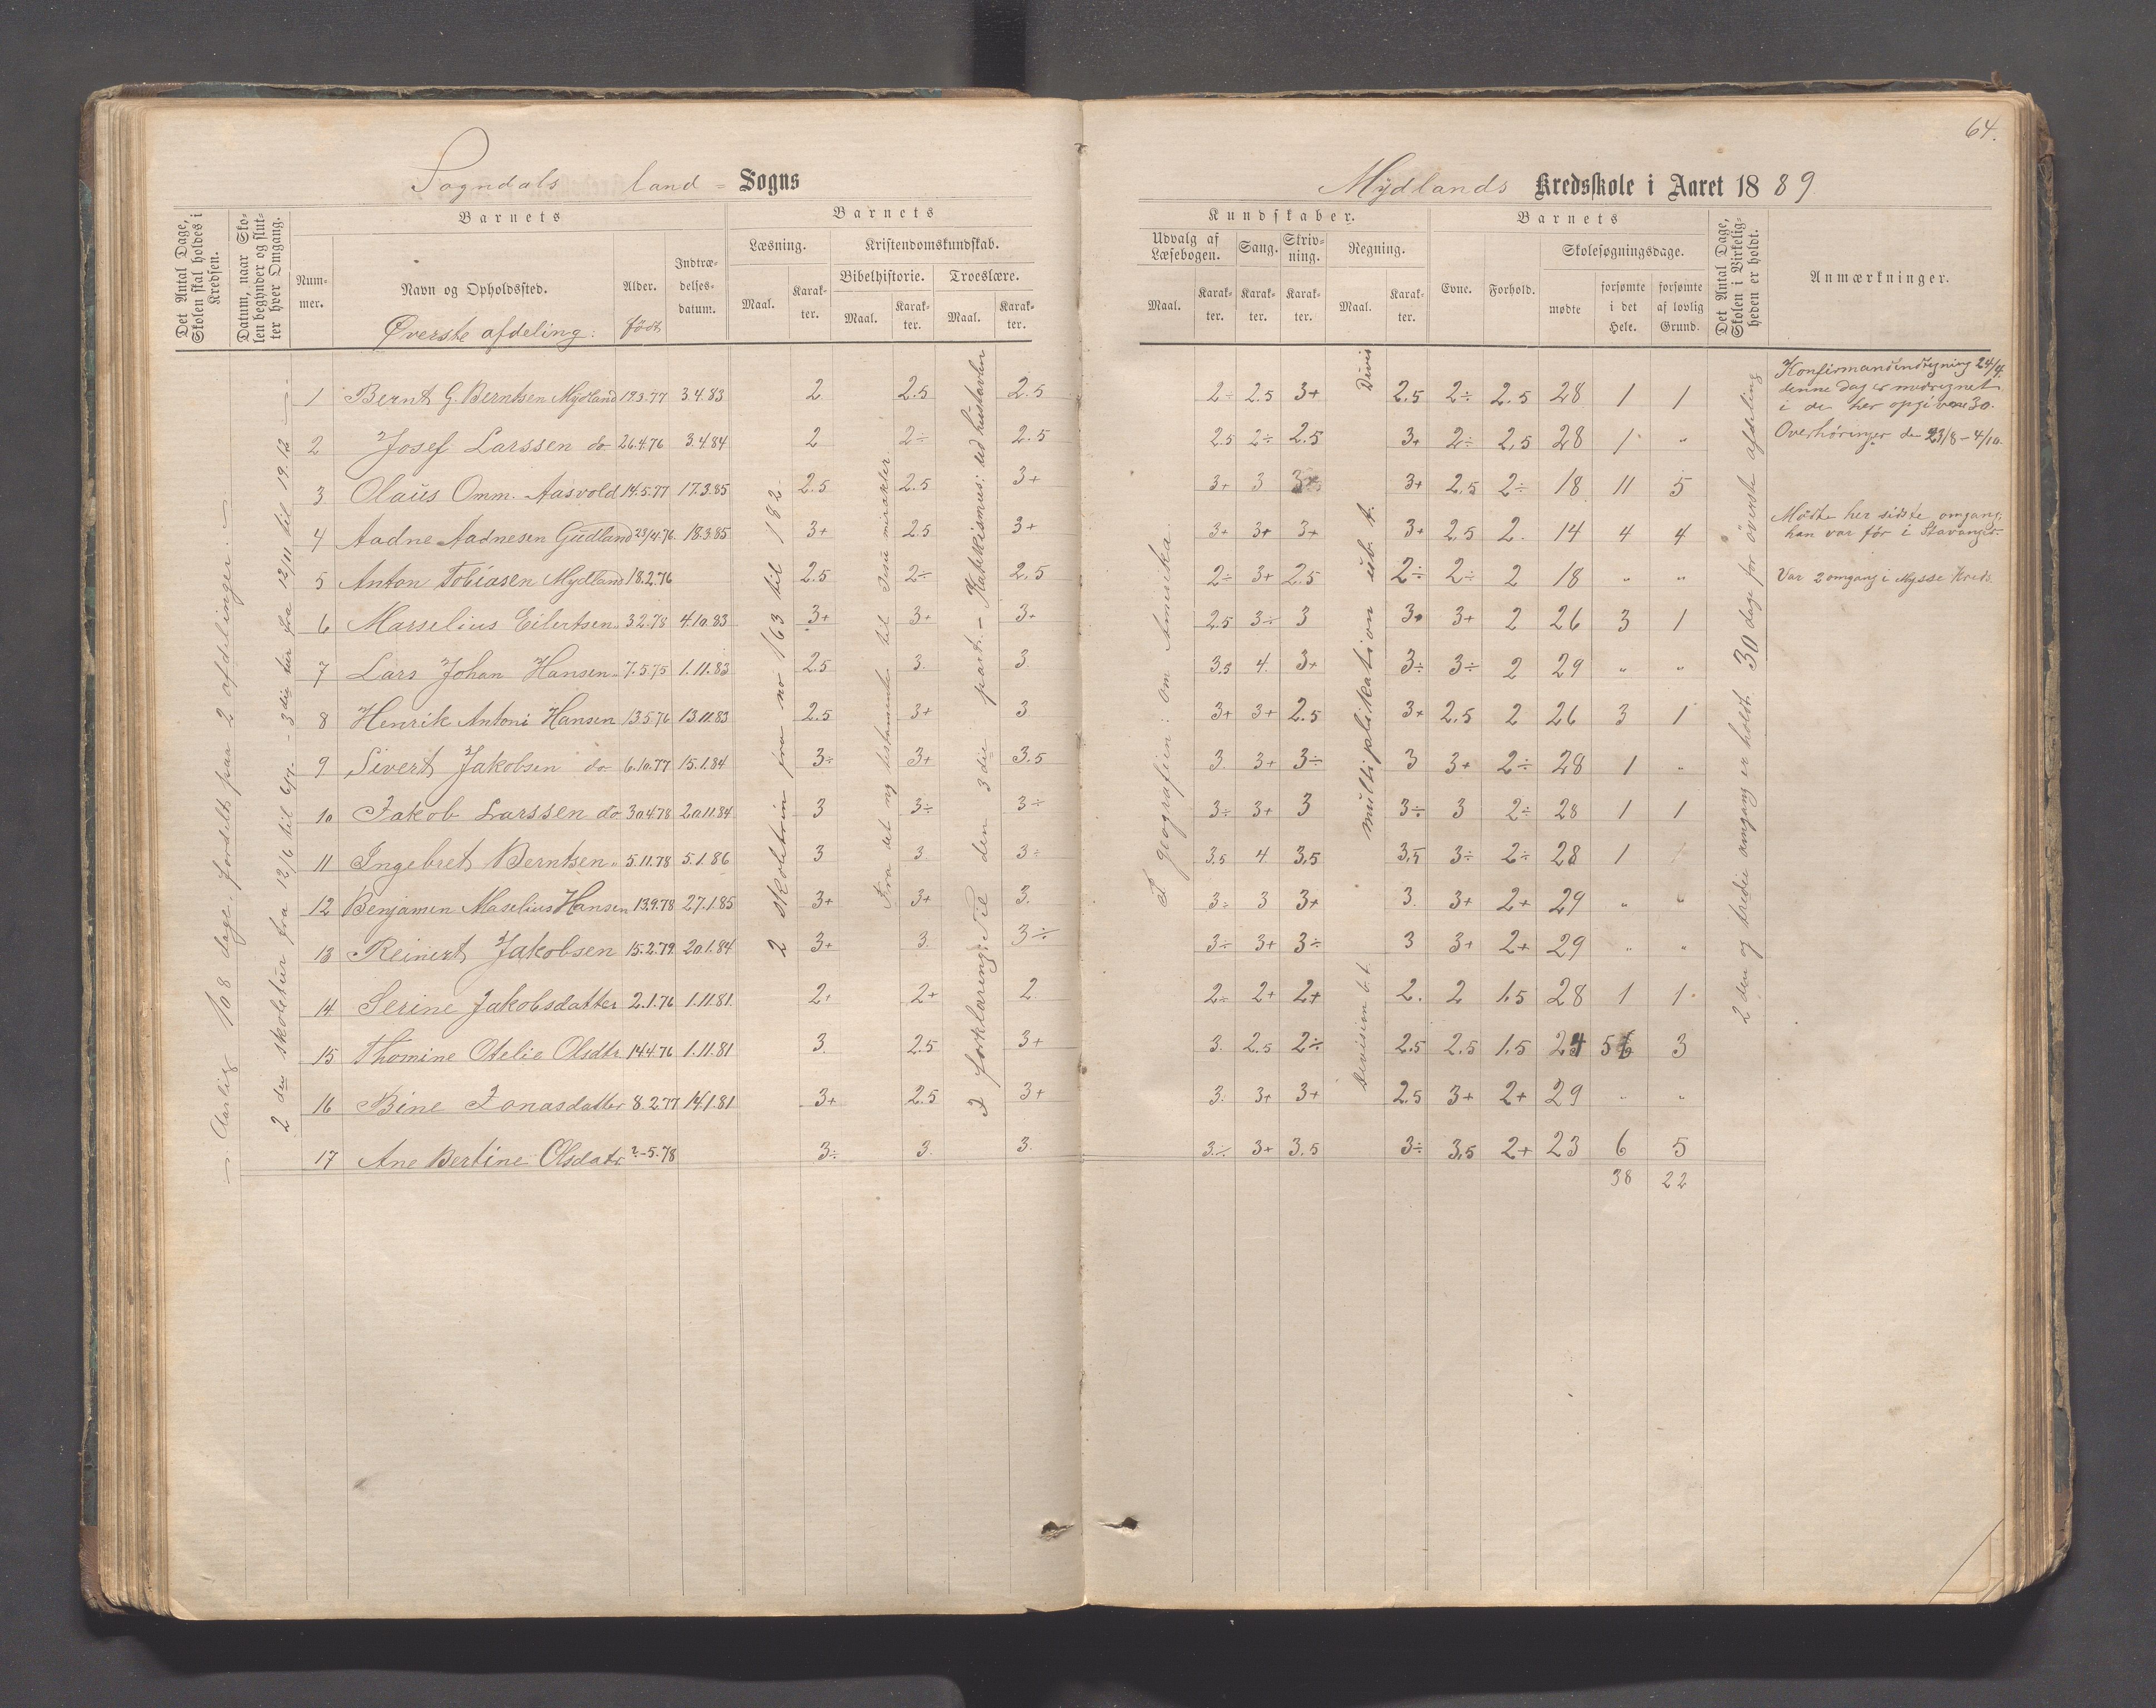 64.
Sogndals land - Sogns
Det Antal Dage, Skolen skal holdes i Kredsen.
Datum, naar Skolen begynder og slutter hver Omgang.
Barnets
Nummer.
Navn og Opholdssted.
Øverste afdeling:
Alder.
født
Indtrædelses-datum.
Barnets
Læsning.
Kristendomskundskab.
Bibelhistorie. Troeslære.
Maal. Karakter. Maal. Karakter. Maal. Karakter.
Mydlands Kredsskole i Aaret 1889.
Kundskaber.
Udvalg af Læsebogen. Sang. Skrivning. Regning.
Maal. Karakter. Karakter. Karakter. Maal. Karakter.
Barnets
Evne. Forhold.
Skolesøgningsdage.
mødte forsømte i det Hele. forsømte af lovlig Grund.
Det Antal Dage, Skolen i Virkeligheden er holdt.
Anmærkninger.
Aarlig 108 dage, fordelt paa 2 afdelinger.
2 den skoletur fra 12/6 til 6/7. - 3die tur fra 12/11 til 19.12
2 skoletrin fra no 163 til 182.
Fra det ny testamente til Jesu mirakler
I forklaring: Til den 3die part. - Katekismus: ud hustavlen
I geografien: om Amerika.
multiplikation ub. t. Divis
Devisien b. t.
2 den og tredie omgang er holdt 30 dage for överste afdeling
1 Bernt G. Berntsen Mydland 19.3.77 3.4.83 2 2.5 2.5 2÷ 2.5 3+ 2.5 2÷ 2.5 28 1 1
2 Josef Larssen do 26.4.76 3.4.84 2 2÷ 2.5 2.5 2÷ 2.5 3+ 2÷ 2.5 28 1 "
3 Olaüs Omm. Aasvold 14.5.77 17.3.85 2.5 2.5 3+ 3+ 3 3+ 3+ 2.5 2÷ 18 11 5
4 Aadne Aadnesen Güdland 23/4.76. 18.3.85 3+ 2.5 3+ 3+ 3+ 3+ 3+ 2.5 2. 14 4 4
5 Anton Tobiasen Mydland 18.2.76 2.5 2÷ 2.5 2÷ 3+ 2.5 2÷ 2÷ 2 18 " "
6 Marselius Eilertsen 3.2.78 4.10.83 3+ 3+ 3+ 2.5 3÷ 3 3+ 3+ 2 26 3 1
7 Lars Johan Hansen 7.5.75 1.11.83 2.5 3. 3 3.5 4. 3+ 3÷ 3÷ 2 29 " "
8 Henrik Antoni Hansen 13.5.76 13.11.83 2.5 3+ 3 3+ 3+ 2.5 3+ 2.5 2 26 3 1
9 Sivert Jakobsen do 6.10.77 15.1.84 3÷ 3+ 3.5 3. 3+ 3÷ 3 3+ 2÷ 28 1 "
10 Jakob Larssen do 30.4.78 20.11.84 3 3÷ 3÷ 3÷ 3+ 3 3÷ 3 2÷ 28 1 1
11 Ingebret Berntsen " 5.11.78 5.1.86 3 3. 3÷ 3.5 4 3.5 3.5 3÷ 2÷ 28 1
12 Benjamen Maselius Hansen 13.9.78 27.1.85 3+ 3+ 3. 3÷ 3 3+ 3. 3+ 2+ 29 " "
13 Reinert Jakobsen 15.2.79. 20.1.84 3+ 3. 3÷ 3÷ 3+ 3÷ 3 3+ 2+ 29 " "
14 Serine Jakobsdatter 2.1.76 1.11.81. 2+ 2+ 2. 2÷ 2+ 2+ 2. 2 1.5 28 1 1
15 Thomine Otelie Olsdtr 14.4.76 1.11.81 3. 2.5 3+ 3. 2.5 2÷ 2.5 2.5 1.5 24 5 3
16 Bine Jonasdatter 8.2.77 14.1.81 3+ 2.5 3+ 3. 3+ 3+ 2.5 3+ 2+ 29 " "
17 Ane Bertine Olsdatr ?-5.78 3÷ 3. 3. 3÷ 3+ 3.5 3÷ 3.5 2+ 23 6 5
38 22
Konfirmandindtegning 24/4.
denne Dag er medregnet
i de her opgivne 30.
Overhøringer den 23/8 - 4/10.
Mödte her sidste omgang;
han var før i Stavanger.
Var 2 omgang i Mysse Kreds.